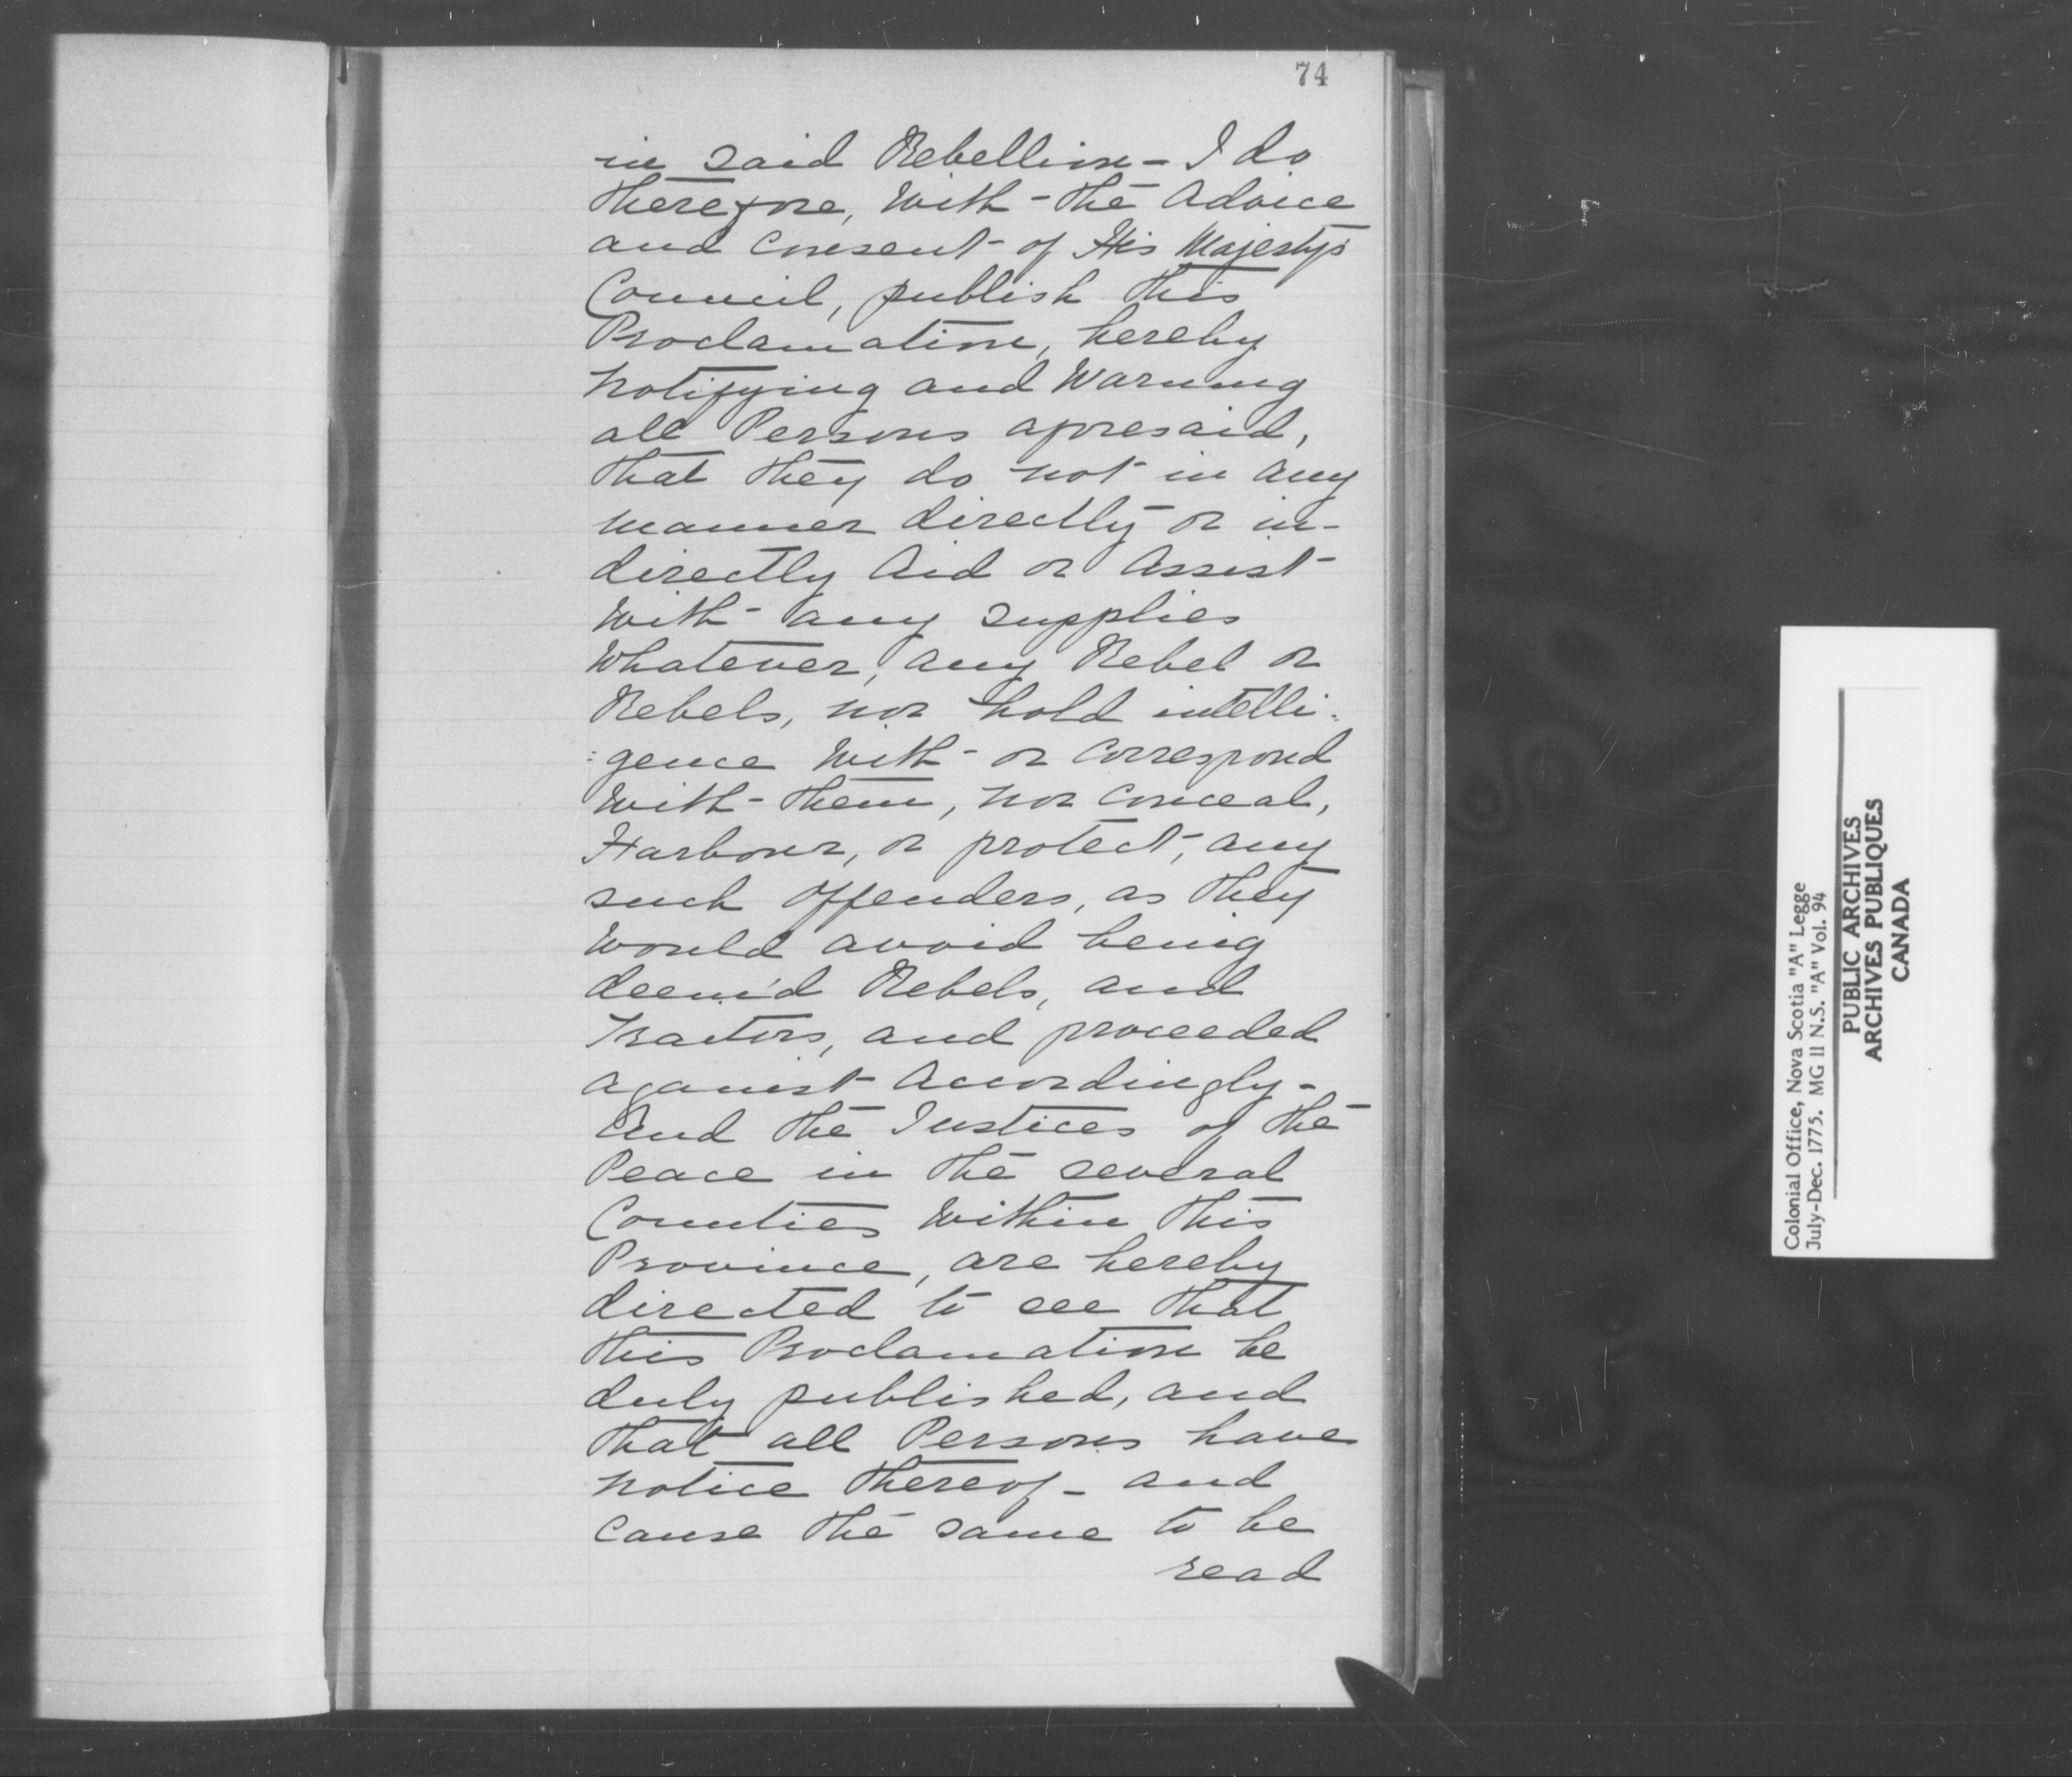 74
in said Rebellion - I do
therefore, with the Advice
and consent of His Majesty's
Council, publish this
Proclamation, hereby
notifying and Warning
all Persons aforesaid,
that they do not in any
manner directly or in-
directly Aid or Assist
with any supplies
whatever, any Rebel or
Rebels, nor hold intelli:
:gence with or correspond
with them, nor conceal,
Harbour, or protect, any
such offenders, as they
would avoid being
deem'd Rebels, and
Traitors, and proceeded
against Accordingly -
And the Justices of the
Peace in the several
Counties within this
Province, are hereby
directed to see that
this Proclamation be
duly published, and
that all Persons have
notice thereof - and
cause the same to be
read
Colonial Office, Nova Scotia "A" Legge
July-Dec. 1775. MG 11 N.S. "A" Vol. 94
PUBLIC ARCHIVES
ARCHIVES PUBLIQUES
CANADA